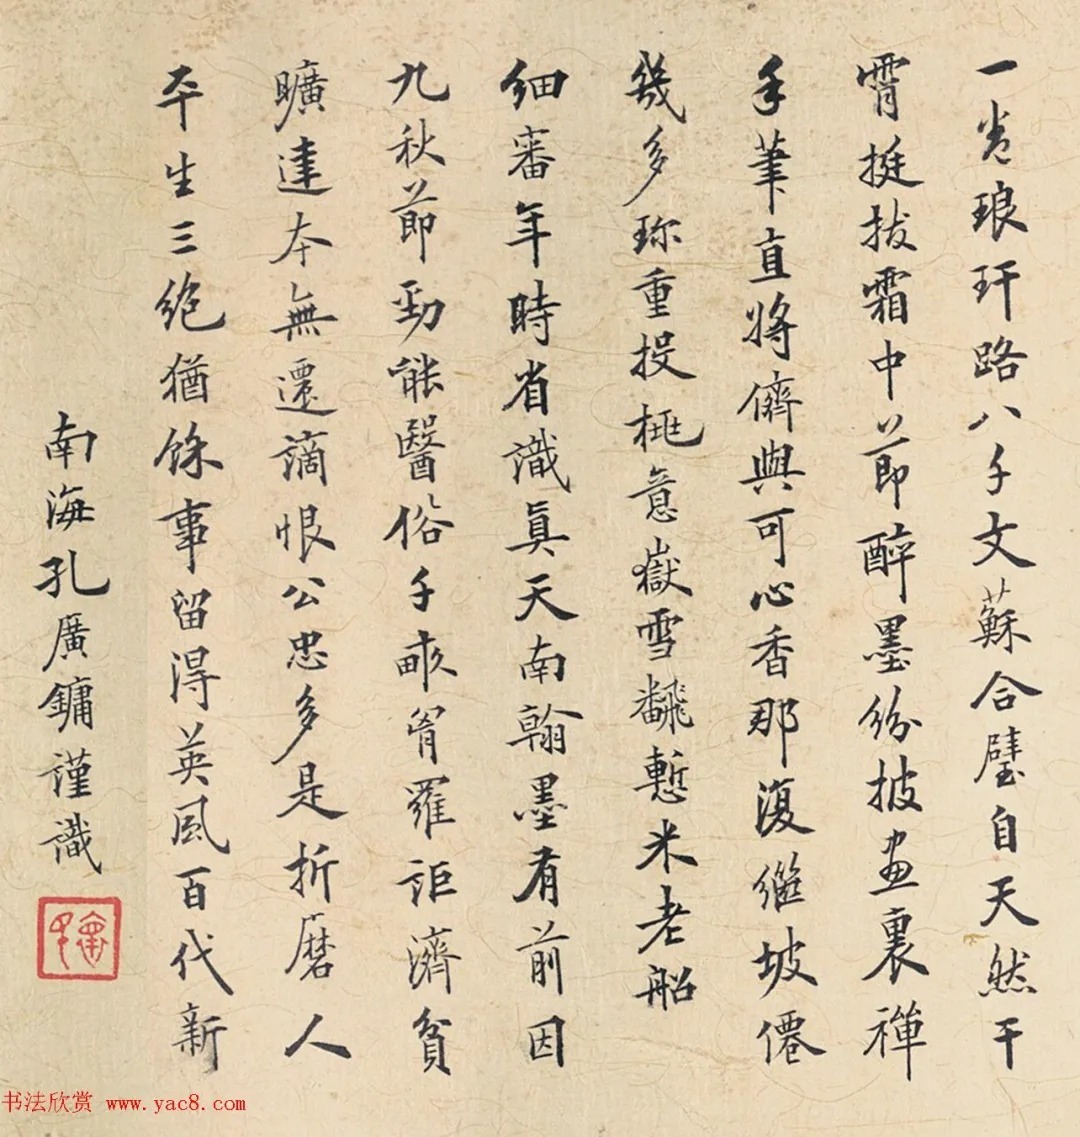 一卷琅玕路八千文蘇合璧自天然干
霄挺拔霜中節醉墨紛披畫裏禪
手筆直將儕與可心香那復繼坡僊
幾多珍重投桃意嶽雪飜飛慙米老船
細審年時省識真天南翰墨有前因
九秋節勁能醫俗千畝胷羅詎濟貧
曠達本無遷謫恨公忠多是折磨人
平生三絕猶餘事留得英風百代新
南海孔廣鏞謹識
书法欣赏 www.yac8.com